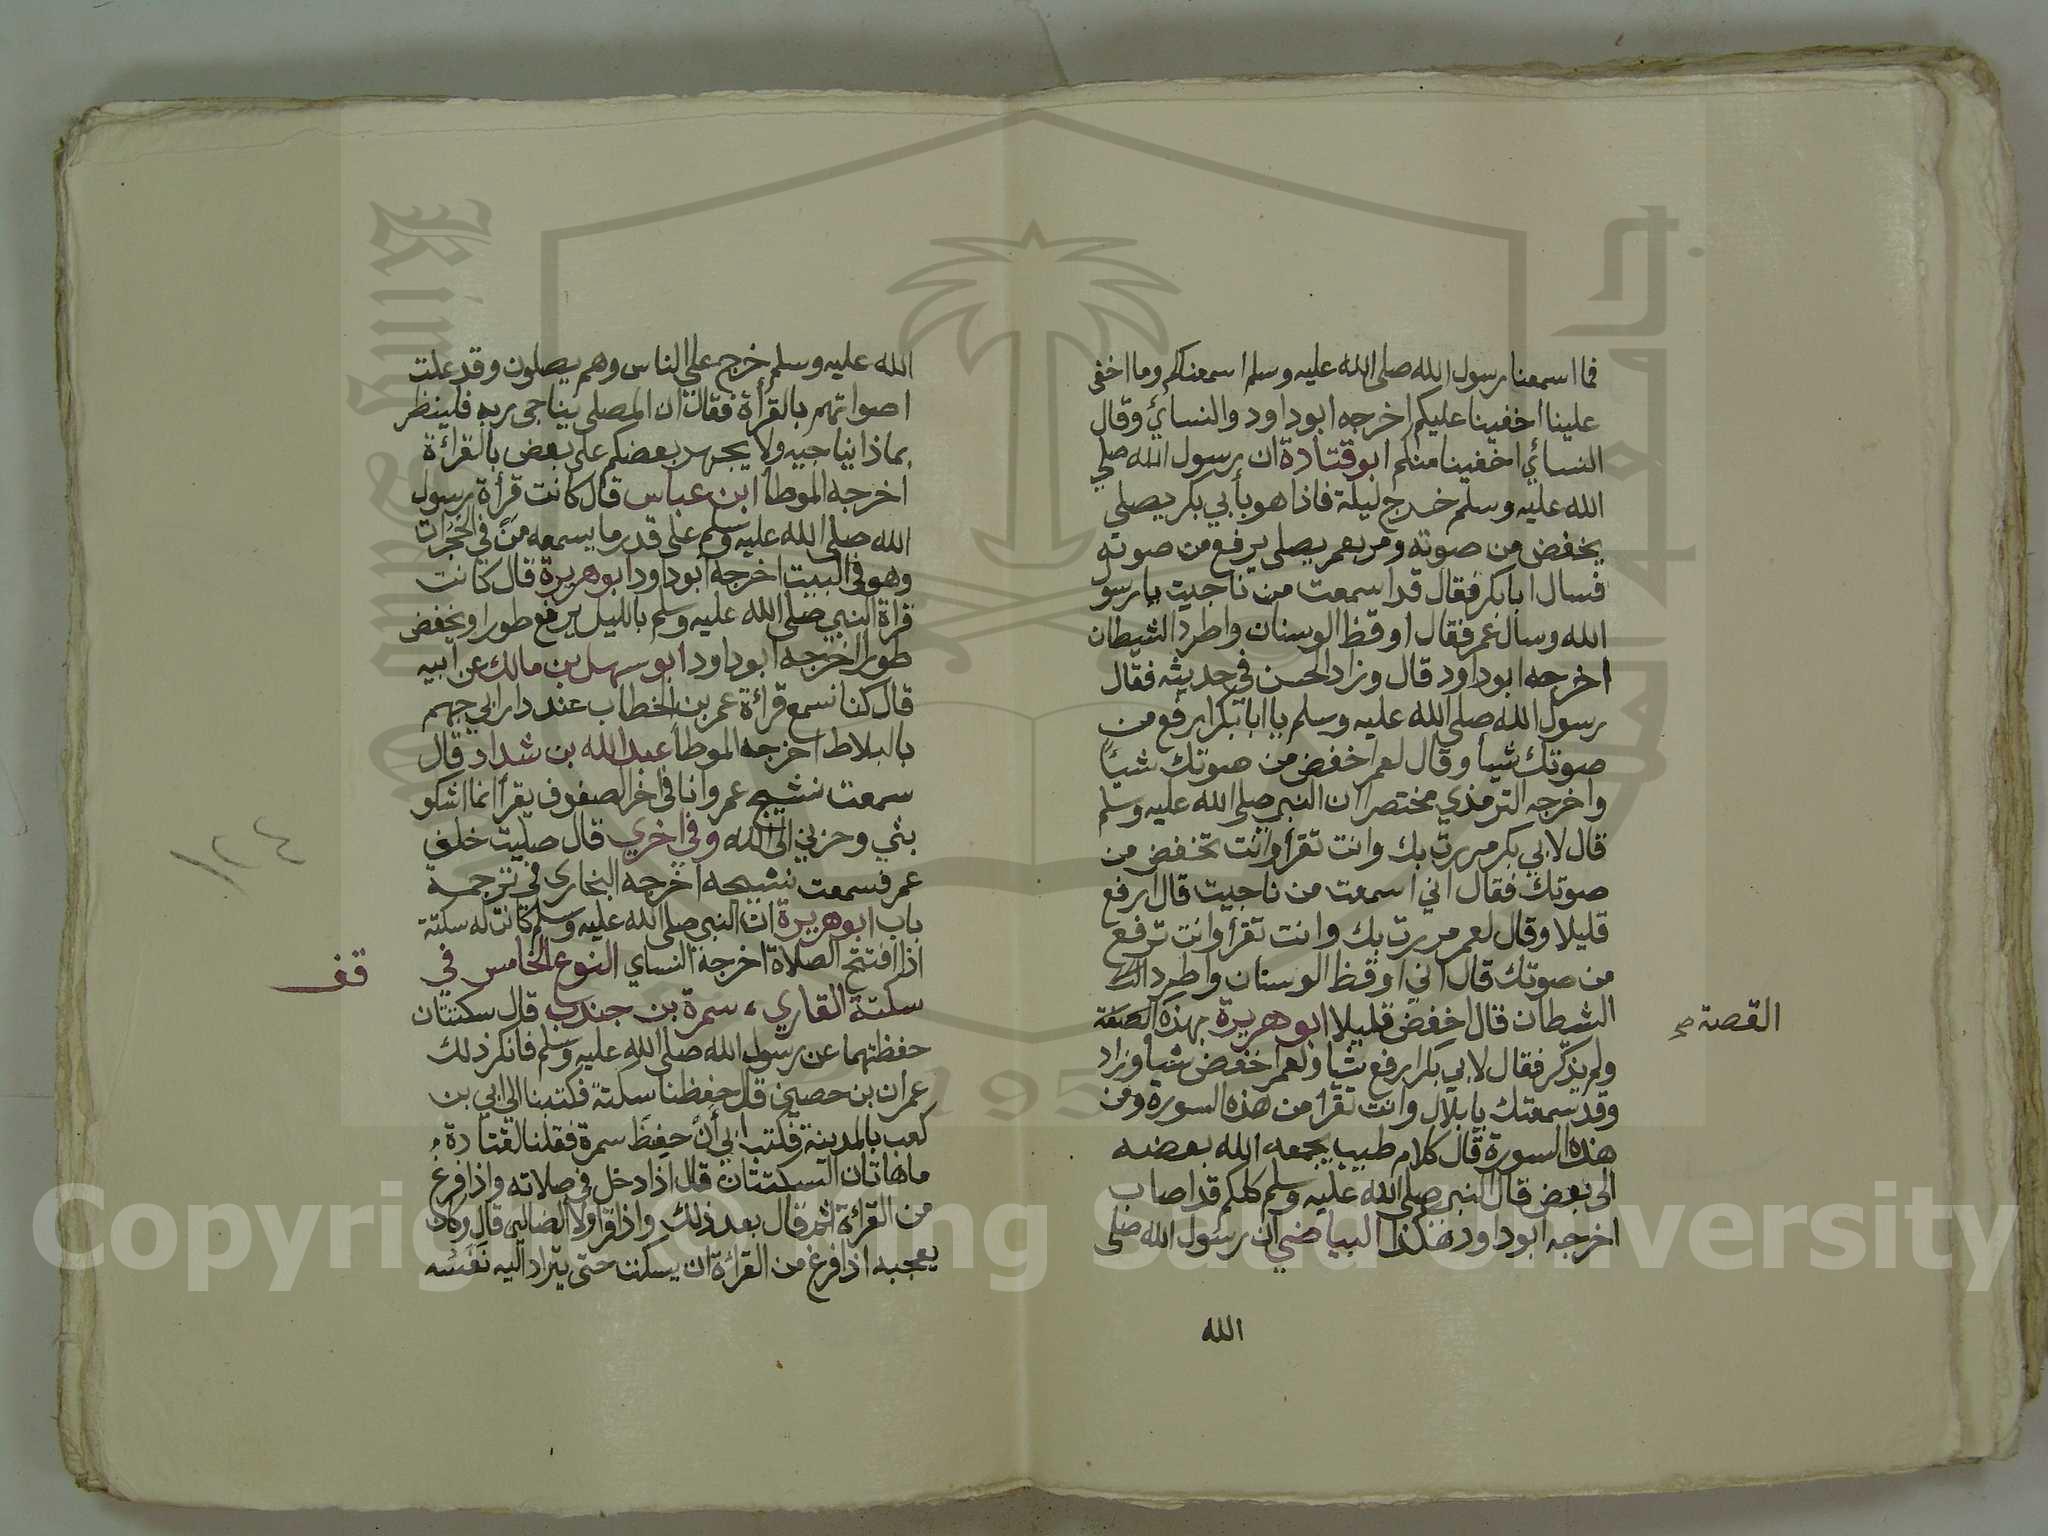 فما اسمعنا رسول الله صلى الله عليه وسلم اسمعناكم وما اخفى
علينا اخفينا عليكم اخرجه ابو داود والنسائي وقال
النسائي اخفينا منكم ابو قتادة ان رسول الله صلى
الله عليه وسلم خرج ليلة فاذا هو بأبي بكر يصلي
يخفض من صوته ومر بعمر يصلي يرفع من صوته
فسال ابا بكر فقال قد اسمعت من ناجيت يا رسو
الله وسأل عمر فقال اوقظ الوسنان واطرد الشيطان
اخرجه ابو داود قال وزاد الحسن في حديثه فقال
رسول الله صلى الله عليه وسلم يا ابا بكر ارفع من
صوتك شيأ وقال لعمر اخفض من صوتك شيأ
واخرجه الترمذي مختصرا ان النبي صلى الله عليه وسلم
قال لابي بكر مررت بك وانت تقرأ وانت تخفض من
صوتك فقال اني اسمعت من ناجيت قال ارفع
قليلا وقال لعمر مررت بك وانت تقرأ وانت ترفع
من صوتك قال اني اوقظ الوسنان واطرد
الشيطان قال اخفض قليلا ابو هريرة بهذه
القصة صح
ولم يذكر فقال لابي بكر ارفع شيأ ولعمر اخفض شيأ وزاد
وقد سمعتك يا بلال وانت تقرأ من هذه السورة ومن
هذه السورة قال كلام طيب يجمعه الله بعضه
الى بعض قال النبي صلى الله عليه وسلم كلكم قد اصاب
اخرجه ابو داود هكذا البياضي ان رسول الله صلى
الله
الله عليه وسلم خرج على الناس وهم يصلون وقد علت
اصواتهم بالقرأة فقال ان المصلي يناجي ربه فلينظر
بماذا يناجيه ولا يجهر بعضكم على بعض بالقرائة
اخرجه الموطأ ابن عباس قال كانت قرأة رسول
الله صلى الله عليه وسلم على قدر ما يسمعه من في الحجرات
وهو في البيت اخرجه ابو داود ابو هريرة قال كانت
قرأة النبي صلى الله عليه وسلم بالليل يرفع طورا ويخفض
طورا اخرجه ابو داود ابو سهيل بن مالك عن ابيه
قال كنا نسمع قرائة عمر بن الخطاب عند دار ابي جهم
بالبلاط اخرجه الموطأ عبد الله بن شداد قال
سمعت نشيج عمر وانا في اخر الصفوف يقرأ انما اشكو
بثي وحزني الى الله وفي اخري قال صليت خلف
عمر فسمعت نشيجه اخرجه البخاري في ترجمة
١٢٤
باب ابو هريرة ان النبي صلى الله عليه وسلم كانت له سكتة
اذا افتتح الصلاة اخرجه النساي النوع الخامس في
قف
سكتة القاري ، سمرة بن جندب قال سكتتان
حفظتهما عن رسول الله صلى الله عليه وسلم فانكر ذلك
عمران بن حصين قال حفظنا سكتة فكتبنا الى ابي بن
كعب بالمدينة فكتب ابي أن حفظ سمرة فقلنا لقتادة
ما هاتان السكتتان قال اذا دخل في صلاته واذا فرغ
من القرائة ثم قال بعد ذلك واذا قرأ ولا الضالين قال وكان
يعجبه اذا فرغ من القرائة ان يسكت حتى يتراد اليه نفسه
Copyright © King Saud University